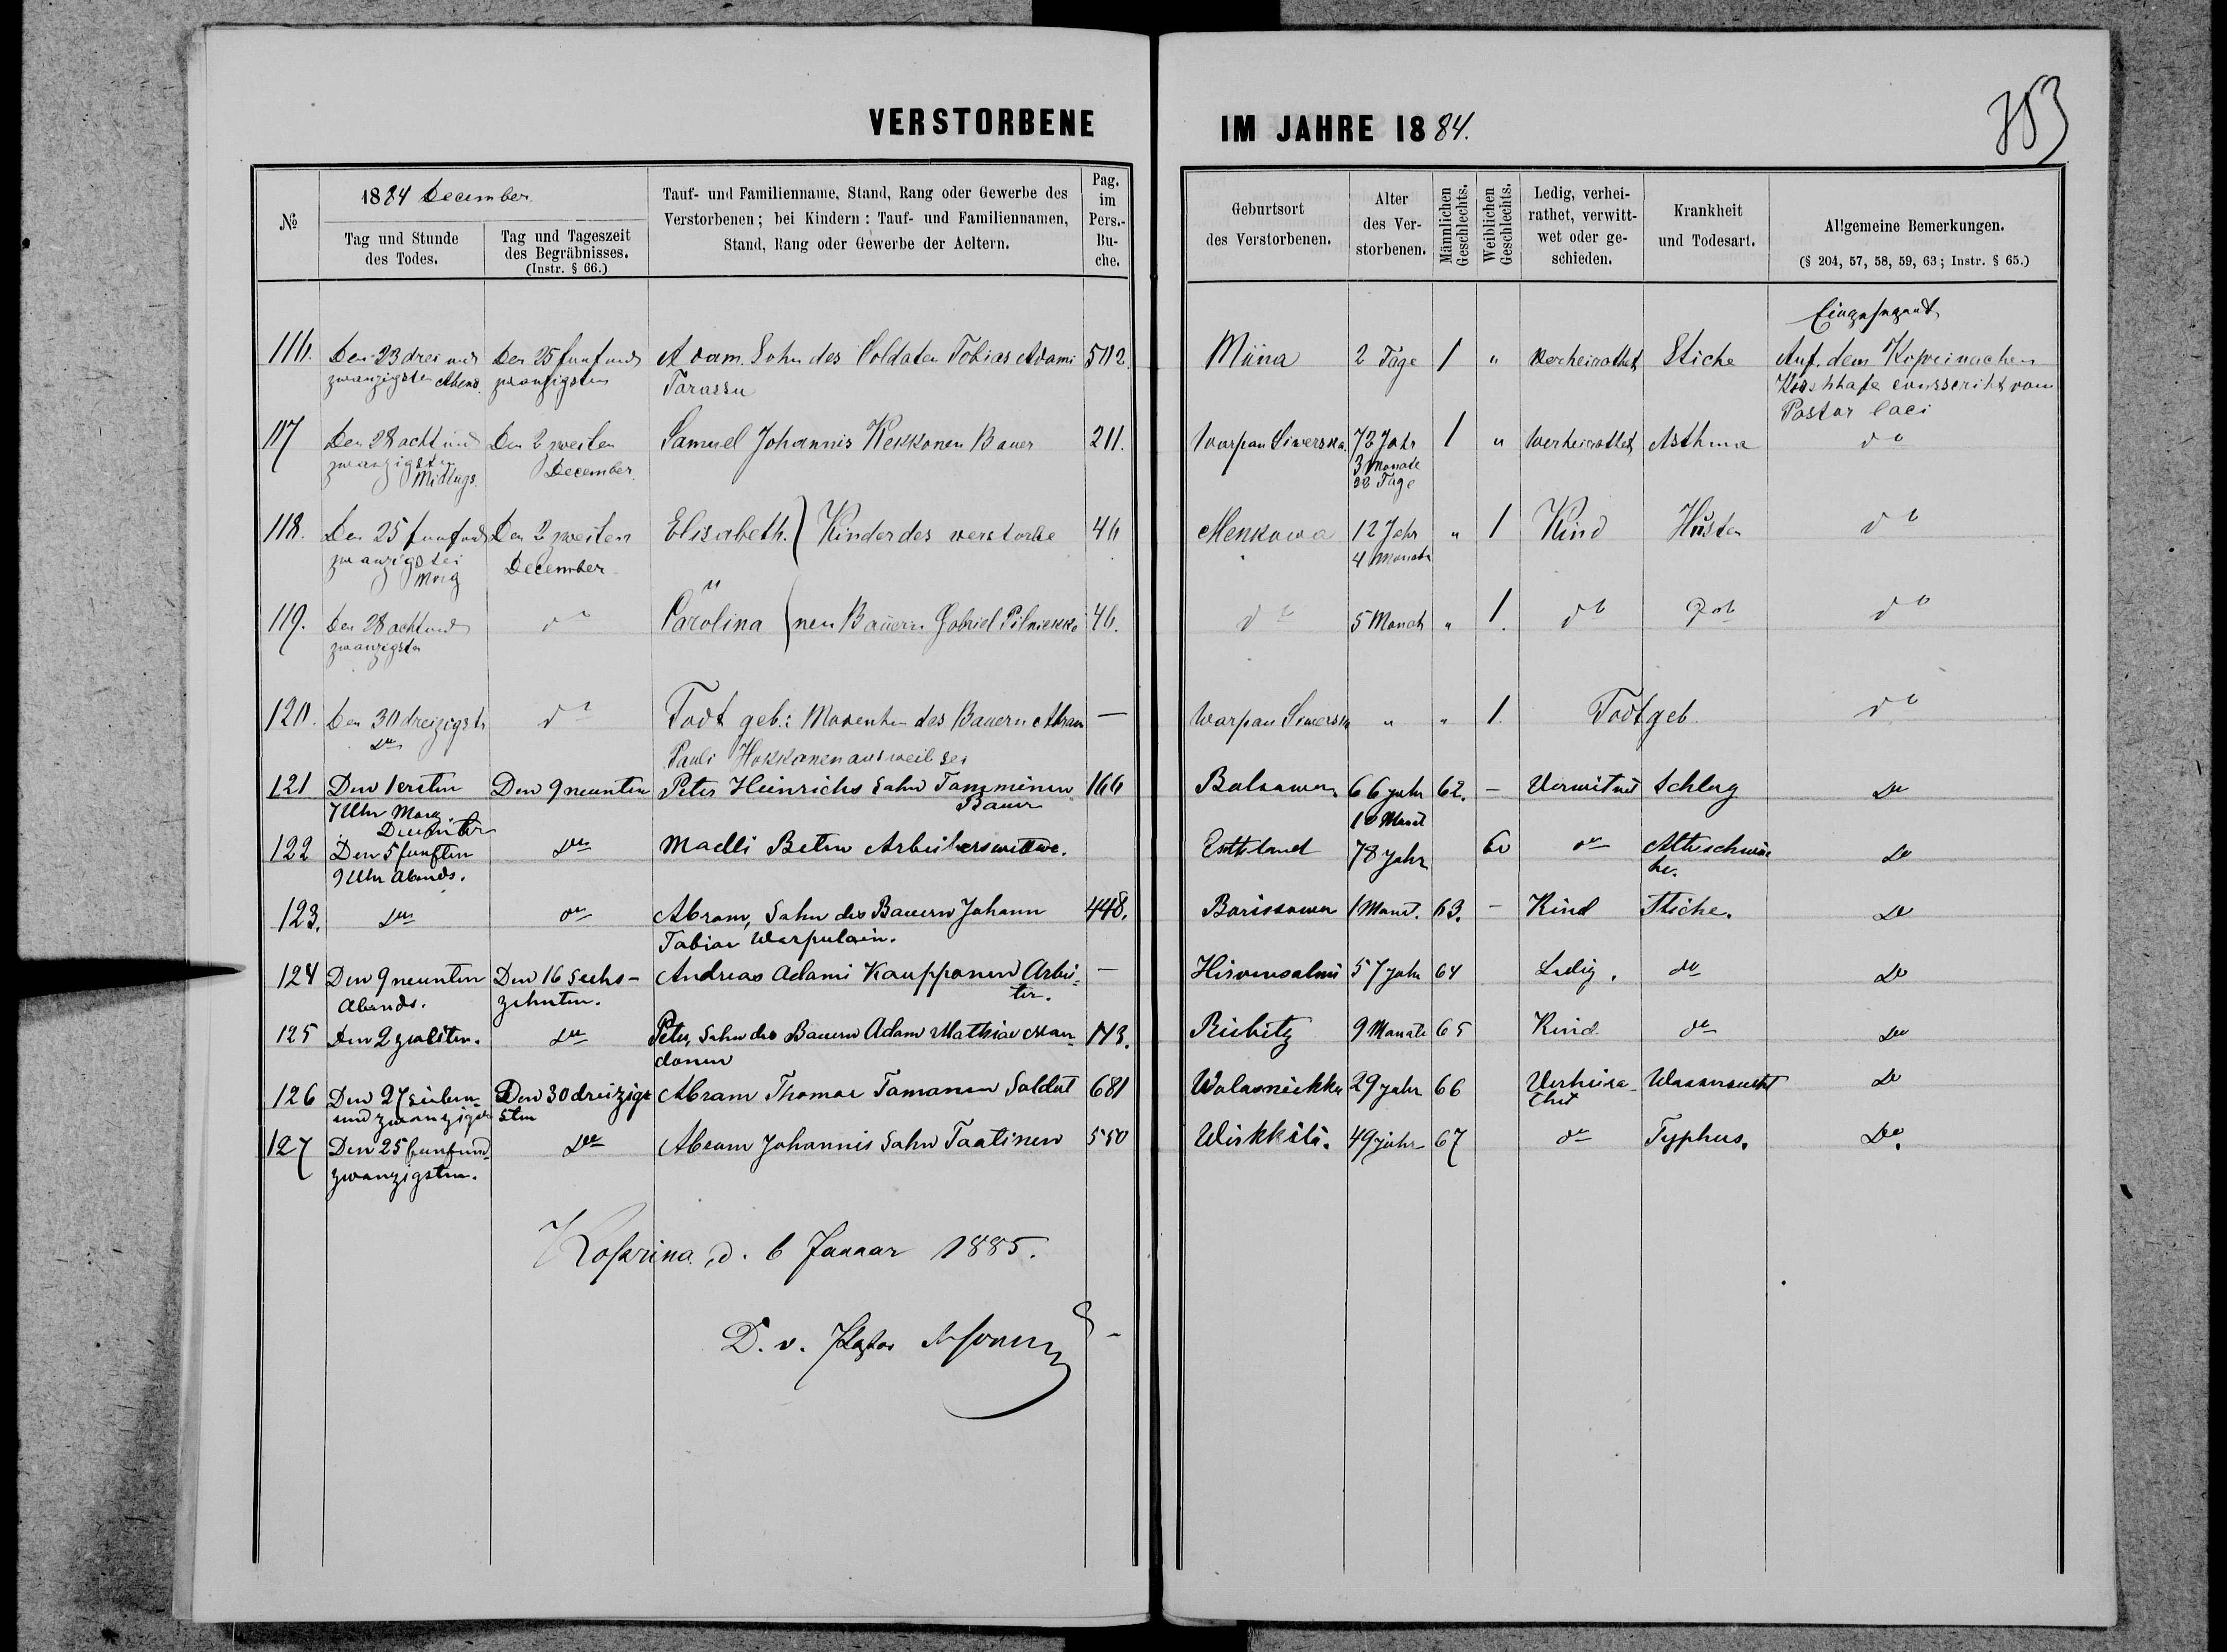 VERSTORBENE
IM JAHRE 1884.
№
1884 December
Tag und Stunde
des Todes.
Tag und Tageszeit
des Begräbnisses.
(Instr. § 66.)
Tauf- und Familienname, Stand, Rang oder Gewerbe des
Verstorbenen; bei Kindern: Tauf- und Familiennamen,
Stand, Rang oder Gewerbe der Aeltern.
Pag.
im
Pers.-
Bu-
che.
Geburtsort
des Verstorbenen.
Alter
des Ver-
storbenen.
Männlichen
Geschlechts.
Weiblichen
Geschlechts.
Ledig, verhei-
rathet, verwitt-
wet oder ge-
schieden.
Krankheit
und Todesart.
Allgemeine Bemerkungen.
(§ 204, 57, 58, 59, 63; Instr. § 65.)
116. Den 23 drei und Den 25 funfund Adam. Sohn des Soldaten Tobias Adami 502. Miina 2 Tage 1 " verheirathet Stiche Auf. dem
zwanzigsten Abend zwanzigsten Tarassu
Pastor loci
117 Den 28 acht und Den 2 zweiten Samuel Johannis Kekkonen Bauer 211. Warpau Siwerska 72 Jahr 1 " Verheirathet Asthma do
zwanzigsten December. 3 Monate
Midtags. 28 Tage
118. Den 25 funfund Den 2 zweiten Elisabeth. ) Kinder des verstorbe 46 Menkowa 12 Jahr " 1 Kind Husten do
zwanzigsten December 4 Monate
Morg
119. Den 28 achtund do Carolina ( nen Bauern Gabriel 46. do 5 Monat " 1. do do do
zwanzigsten
120. Den 30 dreizigste do Todt geb.: des Bauern Abram — Warpau Siwerska " " 1. Todtgeb. do
do Pauli Hokkanen
121 Den 1 ersten Den 9 neunten Peter Heinrichs Sahn Tamminen 166 66 jahr 62. - Verwitwet Schlag do
7 Uhr Morg. Bauer 10 Monat
December
122 Den 5 funften do Madli Beten Arbeiterswittwe. Esthland 78 Jahr 60 do Altersschwäc
9 Uhr Abends. he. do
123. do do Abram, Sahn des Bauern Johann 448. Borissowa 1 Monat. 63. - Kind Stiche. do
Tobias Warpulain.
124 Den 9 neunten Den 16 Sechs- Andreas Adami Kaupponen Arbei- — Hirvensalmi 57 Jahr 64 Ledig. do do
Abends. zehnten. ter.
125 Den 2 zweiten. do Peter, Sahn des Bauern Adam Mathias 113. 9 Monate 65 Kind do do
donen
126 Den 27 sieben- Den 30 dreizig Abram Thomae Tamanen Soldat 681 29 Jahr 66 Verheira- Wassersucht do
und zwanzigsten sten thet
127 Den 25 funfund do Abram Johannis Sahn Taatinen 550 Wirkkilä. 49 jahr 67 do Typhus. do.
zwanzigsten.
Koprina, d. 6 Januar 1885.
D. v. Pastor